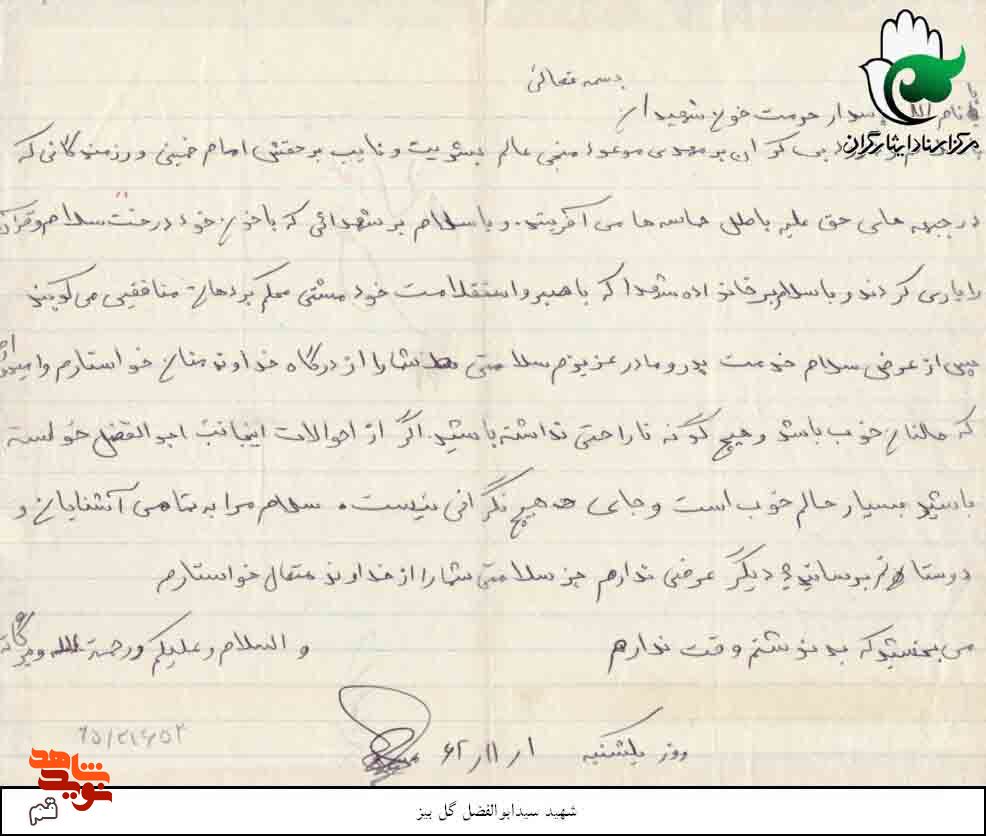 بسمه تعالی
با نام الله پاسدار حرمت خون شهیدان
بی کران بر مهدی موعود منجی عالم بشریت و نایب بر حقش امام خمینی و رزمندگانی که
در جبهه های حق علیه باطل حماسه ها می آفریند. و با سلام بر شهدائی که با خون خود درخت سلام و قرآن
را یاری کردند و با سلام بر خانواده شهدا که با صبر و استقامت خود مشتی محکم بر دهان منافقین می کوبند
پس از عرض سلام خدمت پدر و مادر عزیزم سلامتی شما را از درگاه خداوند منان خواستارم و امیدوارم
که حالتان خوب باشد و هیچ گونه ناراحتی نداشته باشید. اگر از احوالات اینجانب ابوالفضل خواسته
باشید بسیار حالم خوب است و جای هیچ نگرانی نیست. سلام مرا به تمامی آشنایان و
دوستان برسانید دیگر عرضی ندارم جز سلامتی شما را از خداوند متعال خواستارم
می بخشید که بد نوشتم وقت ندارم
و السلام و علیکم و رحمة الله و برکاته
روز یکشنبه ۶۲/۱۱/۱
۶۵/۲۱۶۰۵۲
مرکز اسناد ایثارگران
نوید شاهد
قم
شهید سیدابوالفضل گل بیز